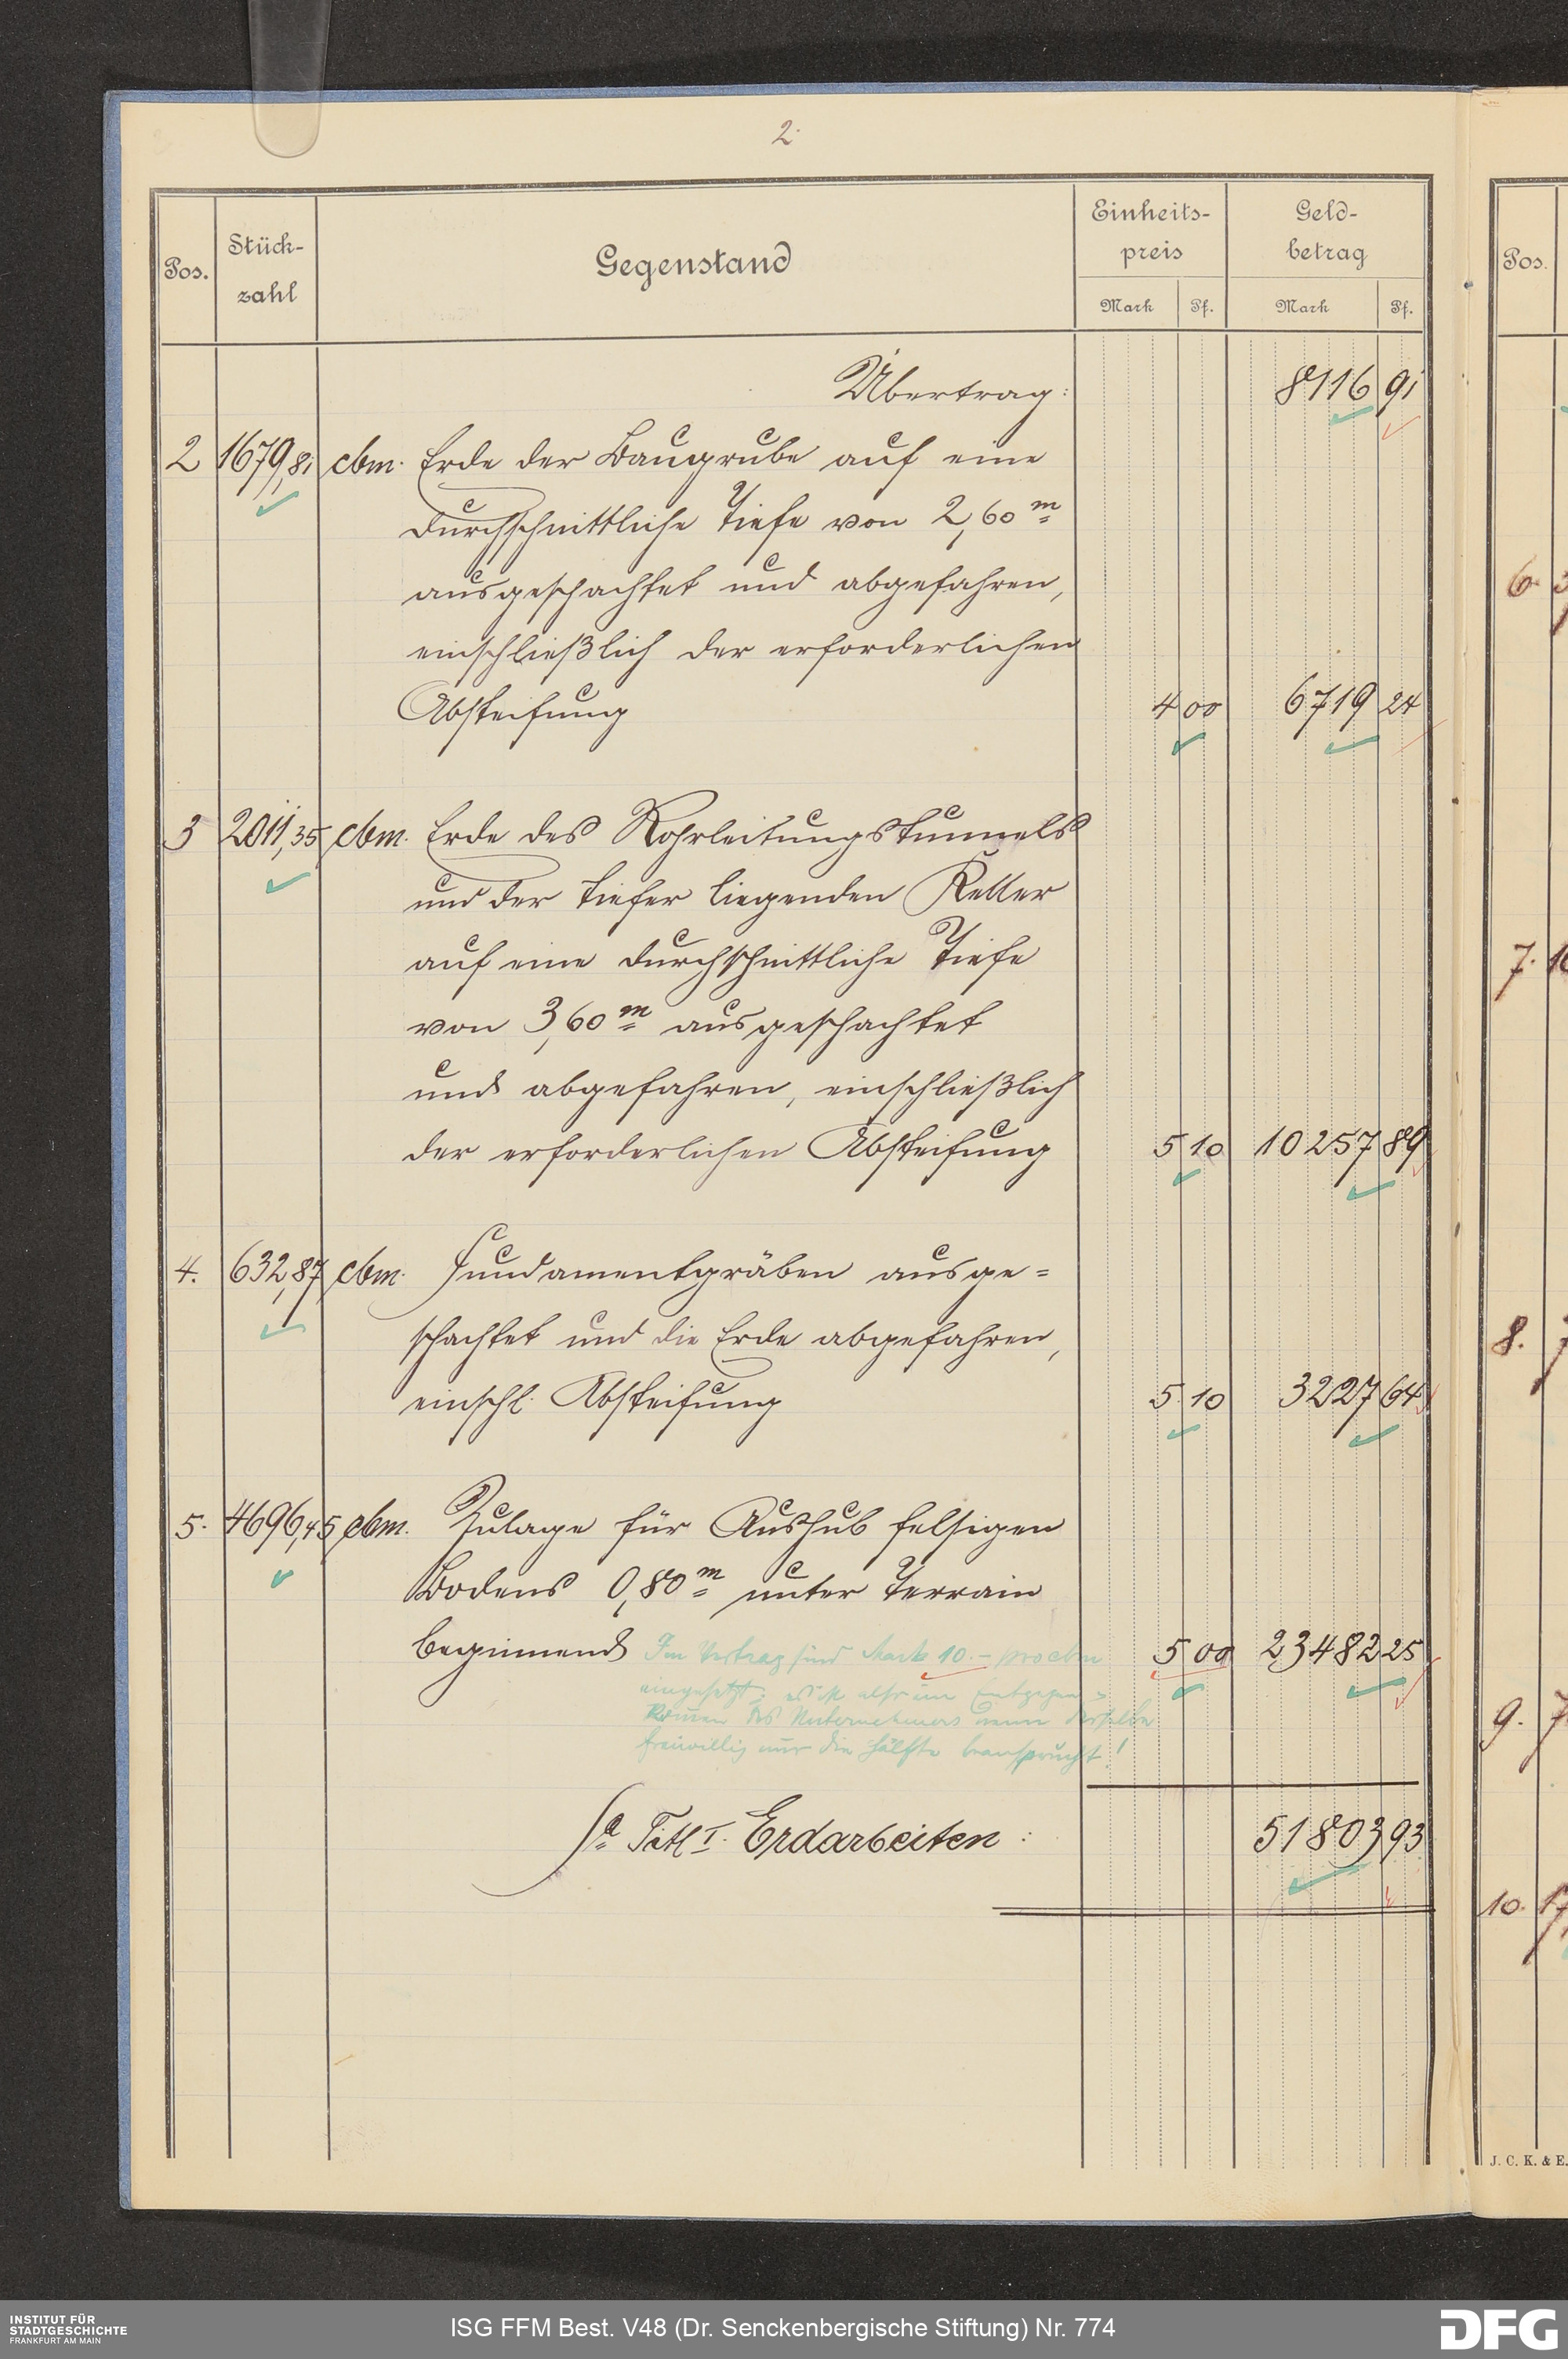 2.
Pos.
Stück-
zahl
Gegenstand
Einheits-
preis
Geld-
betrag
Mark Pf. Mark Pf.
Pos.
Übertrag: 8116 91
2 1679,81 cbm. Erde der Baugrube auf eine
durchschnittliche Tiefe von 2,60 m
ausgeschachtet und abgefahren,
einschließlich der erforderlichen
Absteifung 4 00 6719 24
3 2011,35 cbm. Erde des Rohrleitungstunnels
und der tiefer liegenden Keller
auf eine durchschnittliche Tiefe
von 3,60 m ausgeschachtet
und abgefahren, einschließlich
der erforderlichen Absteifung 5 10 10257 89
4. 632,87 cbm. Fundamentgräben ausge=
schachtet und die Erde abgefahren,
einschl. Absteifung 5 10 3227 64
5. 4696,45 cbm. Zulage für Aushub felsigen
Bodens 0,80 m unter Terrain
beginnend 5 00 23482 25
Im Vertrag sind Mark 10.- pro cbm
eingesetzt; es ist also ein Entgegen=
kommen des Unternehmers wenn derselbe
freiwillig nur die Hälfte beansprucht!
Sa. Titl I. Erdarbeiten: 51803 93
6.
7.
8.
9.
10.
J. C. K. & E.
INSTITUT FÜR
STADTGESCHICHTE
FRANKFURT AM MAIN
ISG FFM Best. V48 (Dr. Senckenbergische Stiftung) Nr. 774
DFG